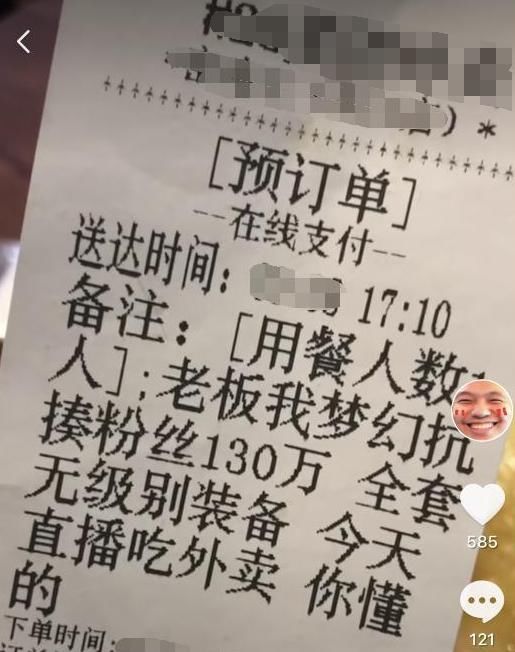 [预订单]
--在线支付--
送达时间: 17:10
备注: [用餐人数1
人];老板我梦幻抗
揍粉丝130万 全套
无级别装备 今天
直播吃外卖 你懂
的
下单时间:
585
121